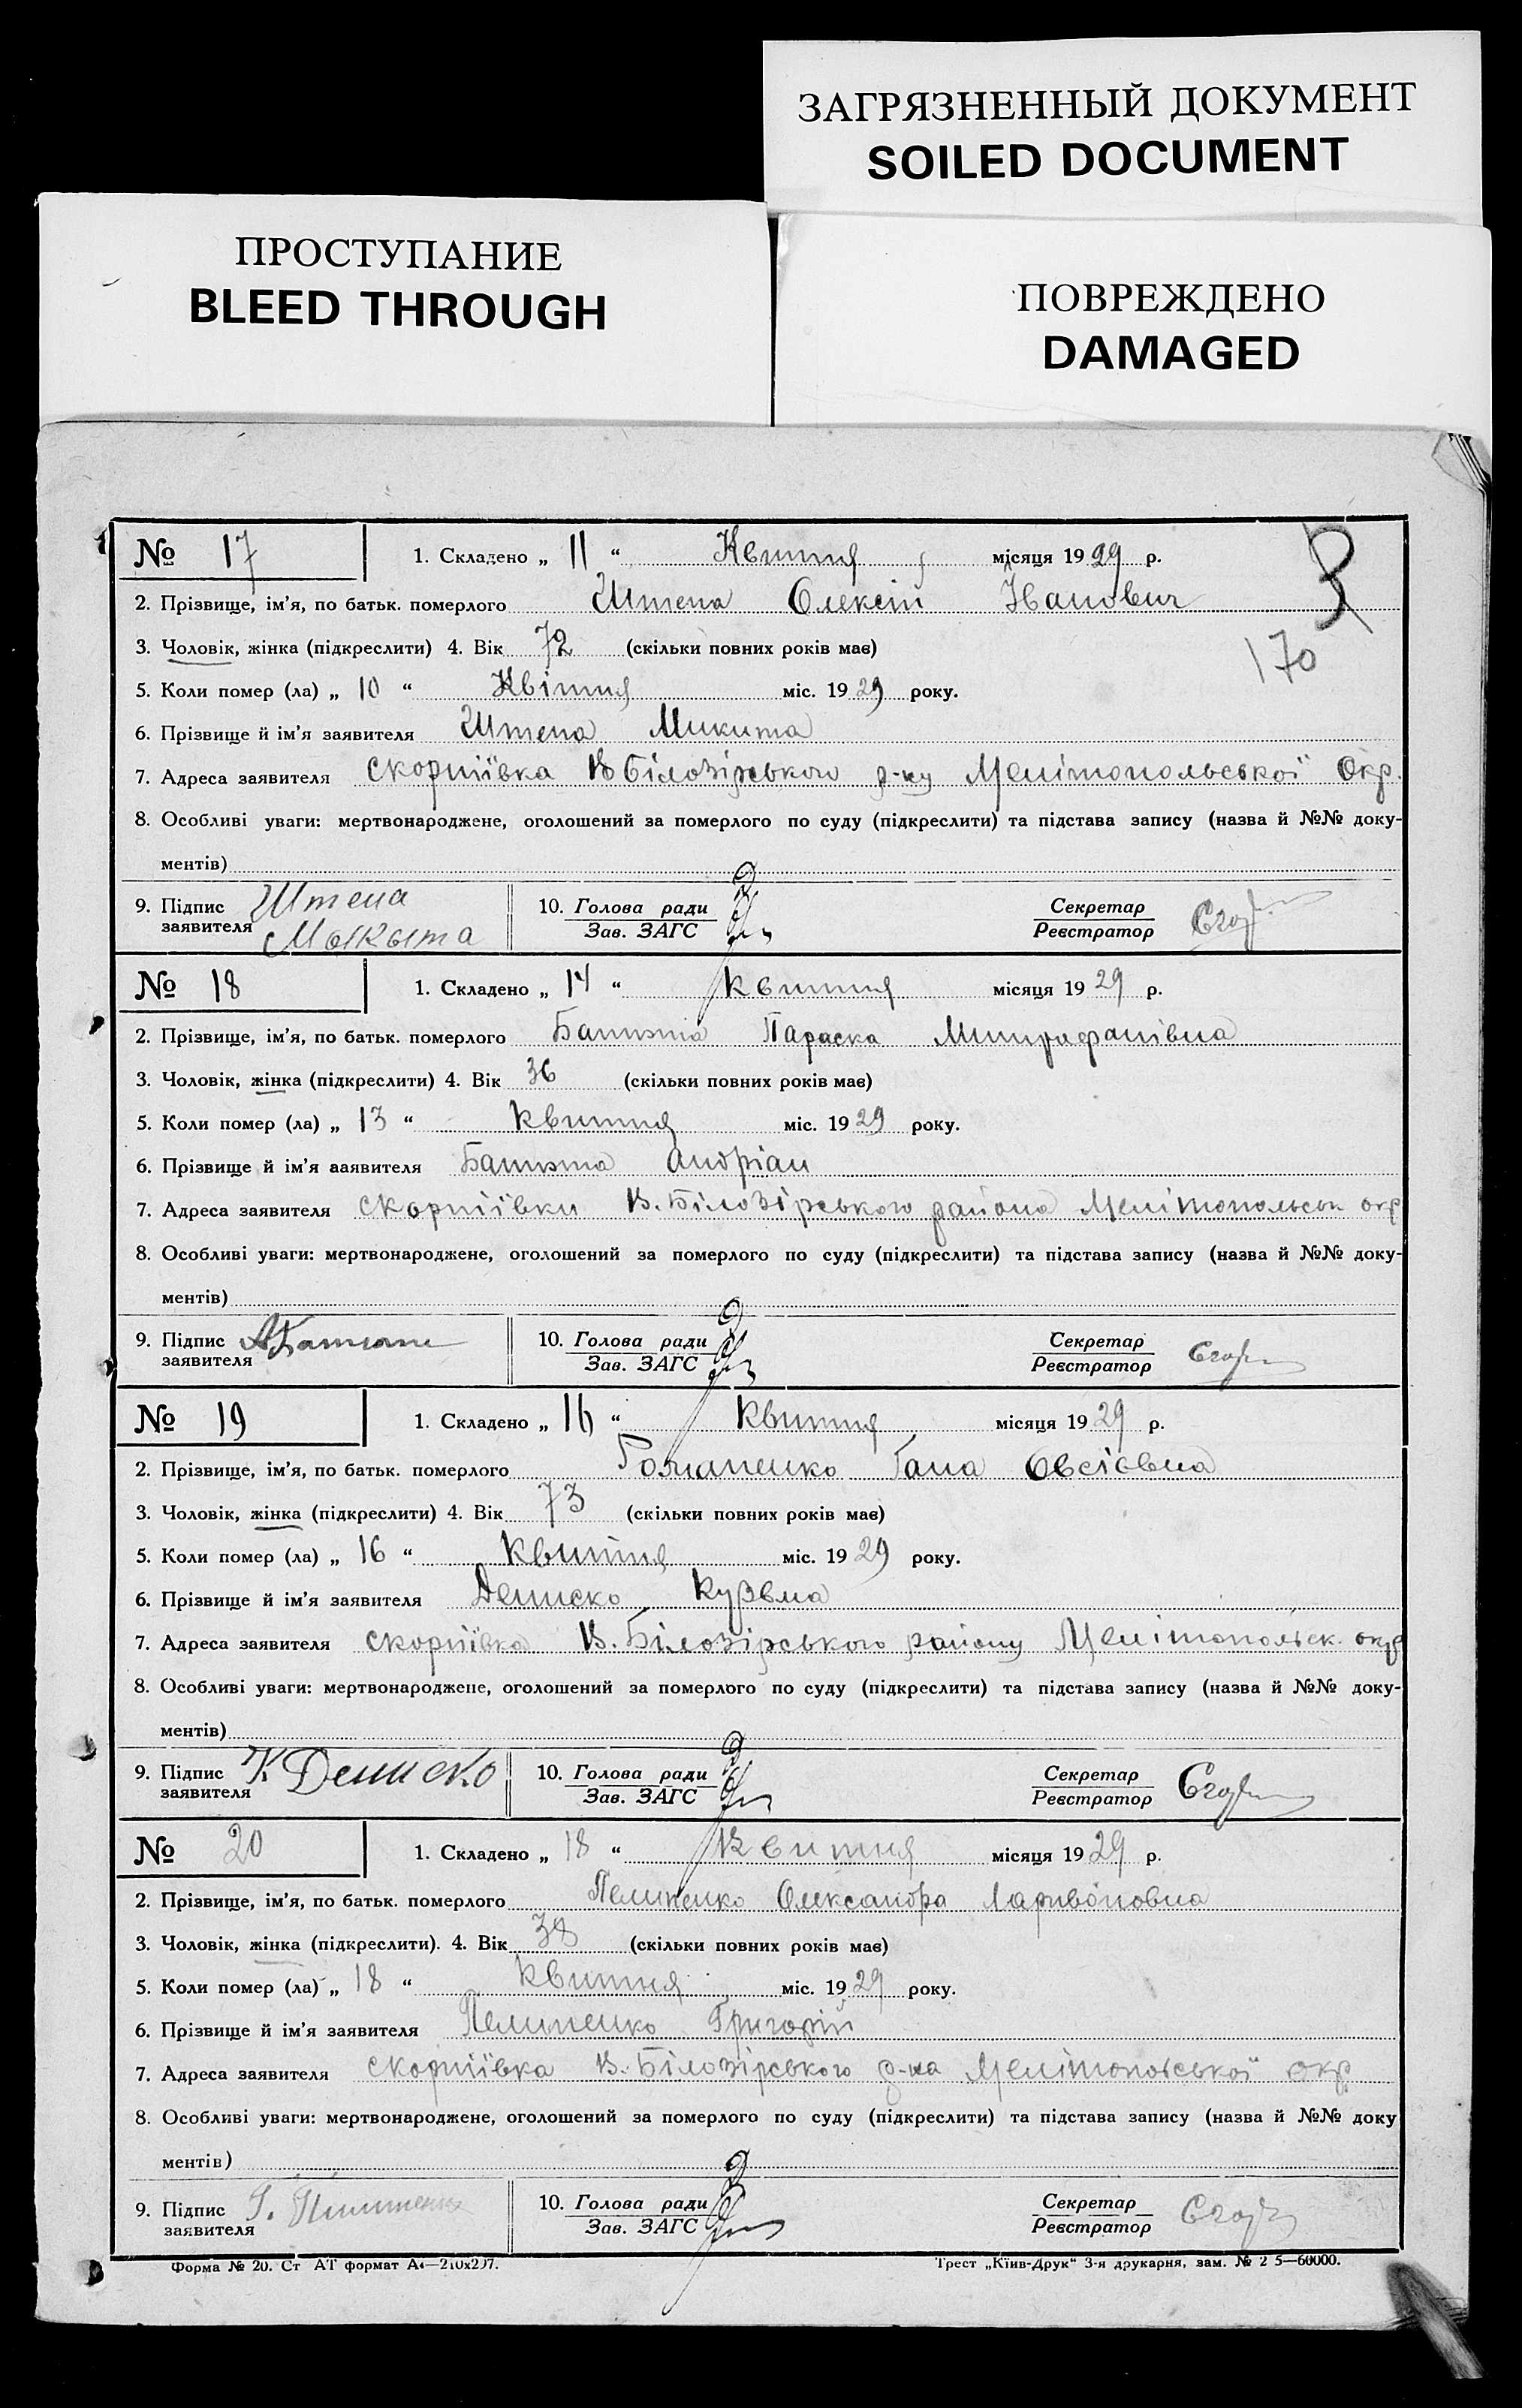 ЗАГРЯЗНЕННЫЙ ДОКУМЕНТ
SOILED DOCUMENT
ПРОСТУПАНИЕ
BLEED THROUGH
ПОВРЕЖДЕНО
DAMAGED
№ 17 1. Складено „ 11 “ Квитня місяця 1929 р.
2. Прізвище, ім'я, по батьк. померлого Штепа Олексій Іванович
3. Чоловік, жінка (підкреслити) 4. Вік 72 (скільки повних років має)
170
5. Коли помер (ла) „ 10 “ Квітня міс. 1929 року.
6. Прізвище й ім'я заявителя Штепа Микита
7. Адреса заявителя Скорпіївка В Білозірського р-ну Мелітопольської Окр.
8. Особливі уваги: мертвонароджене, оголошений за померлого по суду (підкреслити) та підстава запису (назва й №№ доку-
ментів)
9. Підпис заявителя Штепа Мыкыта 10. Голова ради Зав. ЗАГС Секретар Реєстратор
№ 18 1. Складено „ 14 “ квитня місяця 1929 р.
2. Прізвище, ім'я, по батьк. померлого Параска Митрофанівна
3. Чоловік, жінка (підкреслити) 4. Вік 36 (скільки повних років має)
5. Коли помер (ла) „ 13 “ квитня міс. 1929 року.
6. Прізвище й ім'я заявителя Андріан
7. Адреса заявителя Скорпіївки В. Білозірського района Мелітопольськ окр
8. Особливі уваги: мертвонароджене, оголошений за померлого по суду (підкреслити) та підстава запису (назва й №№ доку-
ментів)
9. Підпис заявителя 10. Голова ради Зав. ЗАГС Секретар Реєстратор
№ 19 1. Складено „ 16 “ квитня місяця 1929 р.
2. Прізвище, ім'я, по батьк. померлого Романенко Гана Овсіевна
3. Чоловік, жінка (підкреслити) 4. Вік 73 (скільки повних років має)
5. Коли помер (ла) „ 16 “ квитня міс. 1929 року.
6. Прізвище й ім'я заявителя Дениско Кузьма
7. Адреса заявителя Скорпіївка В. Білозірського району Мелітопольск. окр
8. Особливі уваги: мертвонароджене, оголошений за померлого по суду (підкреслити) та підстава запису (назва й №№ доку-
ментів)
9. Підпис заявителя К Дениско 10. Голова ради Зав. ЗАГС Секретар Реєстратор
№ 20 1. Складено „ 18 “ Квитня місяця 1929 р.
2. Прізвище, ім'я, по батьк. померлого Пелипенко Олександра Ларивоновна
3. Чоловік, жінка (підкреслити). 4. Вік 38 (скільки повних років має)
5. Коли помер (ла) „ 18 “ квитня міс. 1929 року.
6. Прізвище й ім'я заявителя Пелипенко Григорій
7. Адреса заявителя Скорпіївка В. Білозірського р-на Мелітопольської окр
8. Особливі уваги: мертвонароджене, оголошений за померлого по суду (підкреслити) та підстава запису (назва й №№ доку
ментів)
9. Підпис заявителя 10. Голова ради Зав. ЗАГС Секретар Реєстратор
Форма № 20. Ст АТ формат А4—210х297. Трест „Київ-Друк“ 3-я друкарня, зам. № 2 5—60000.